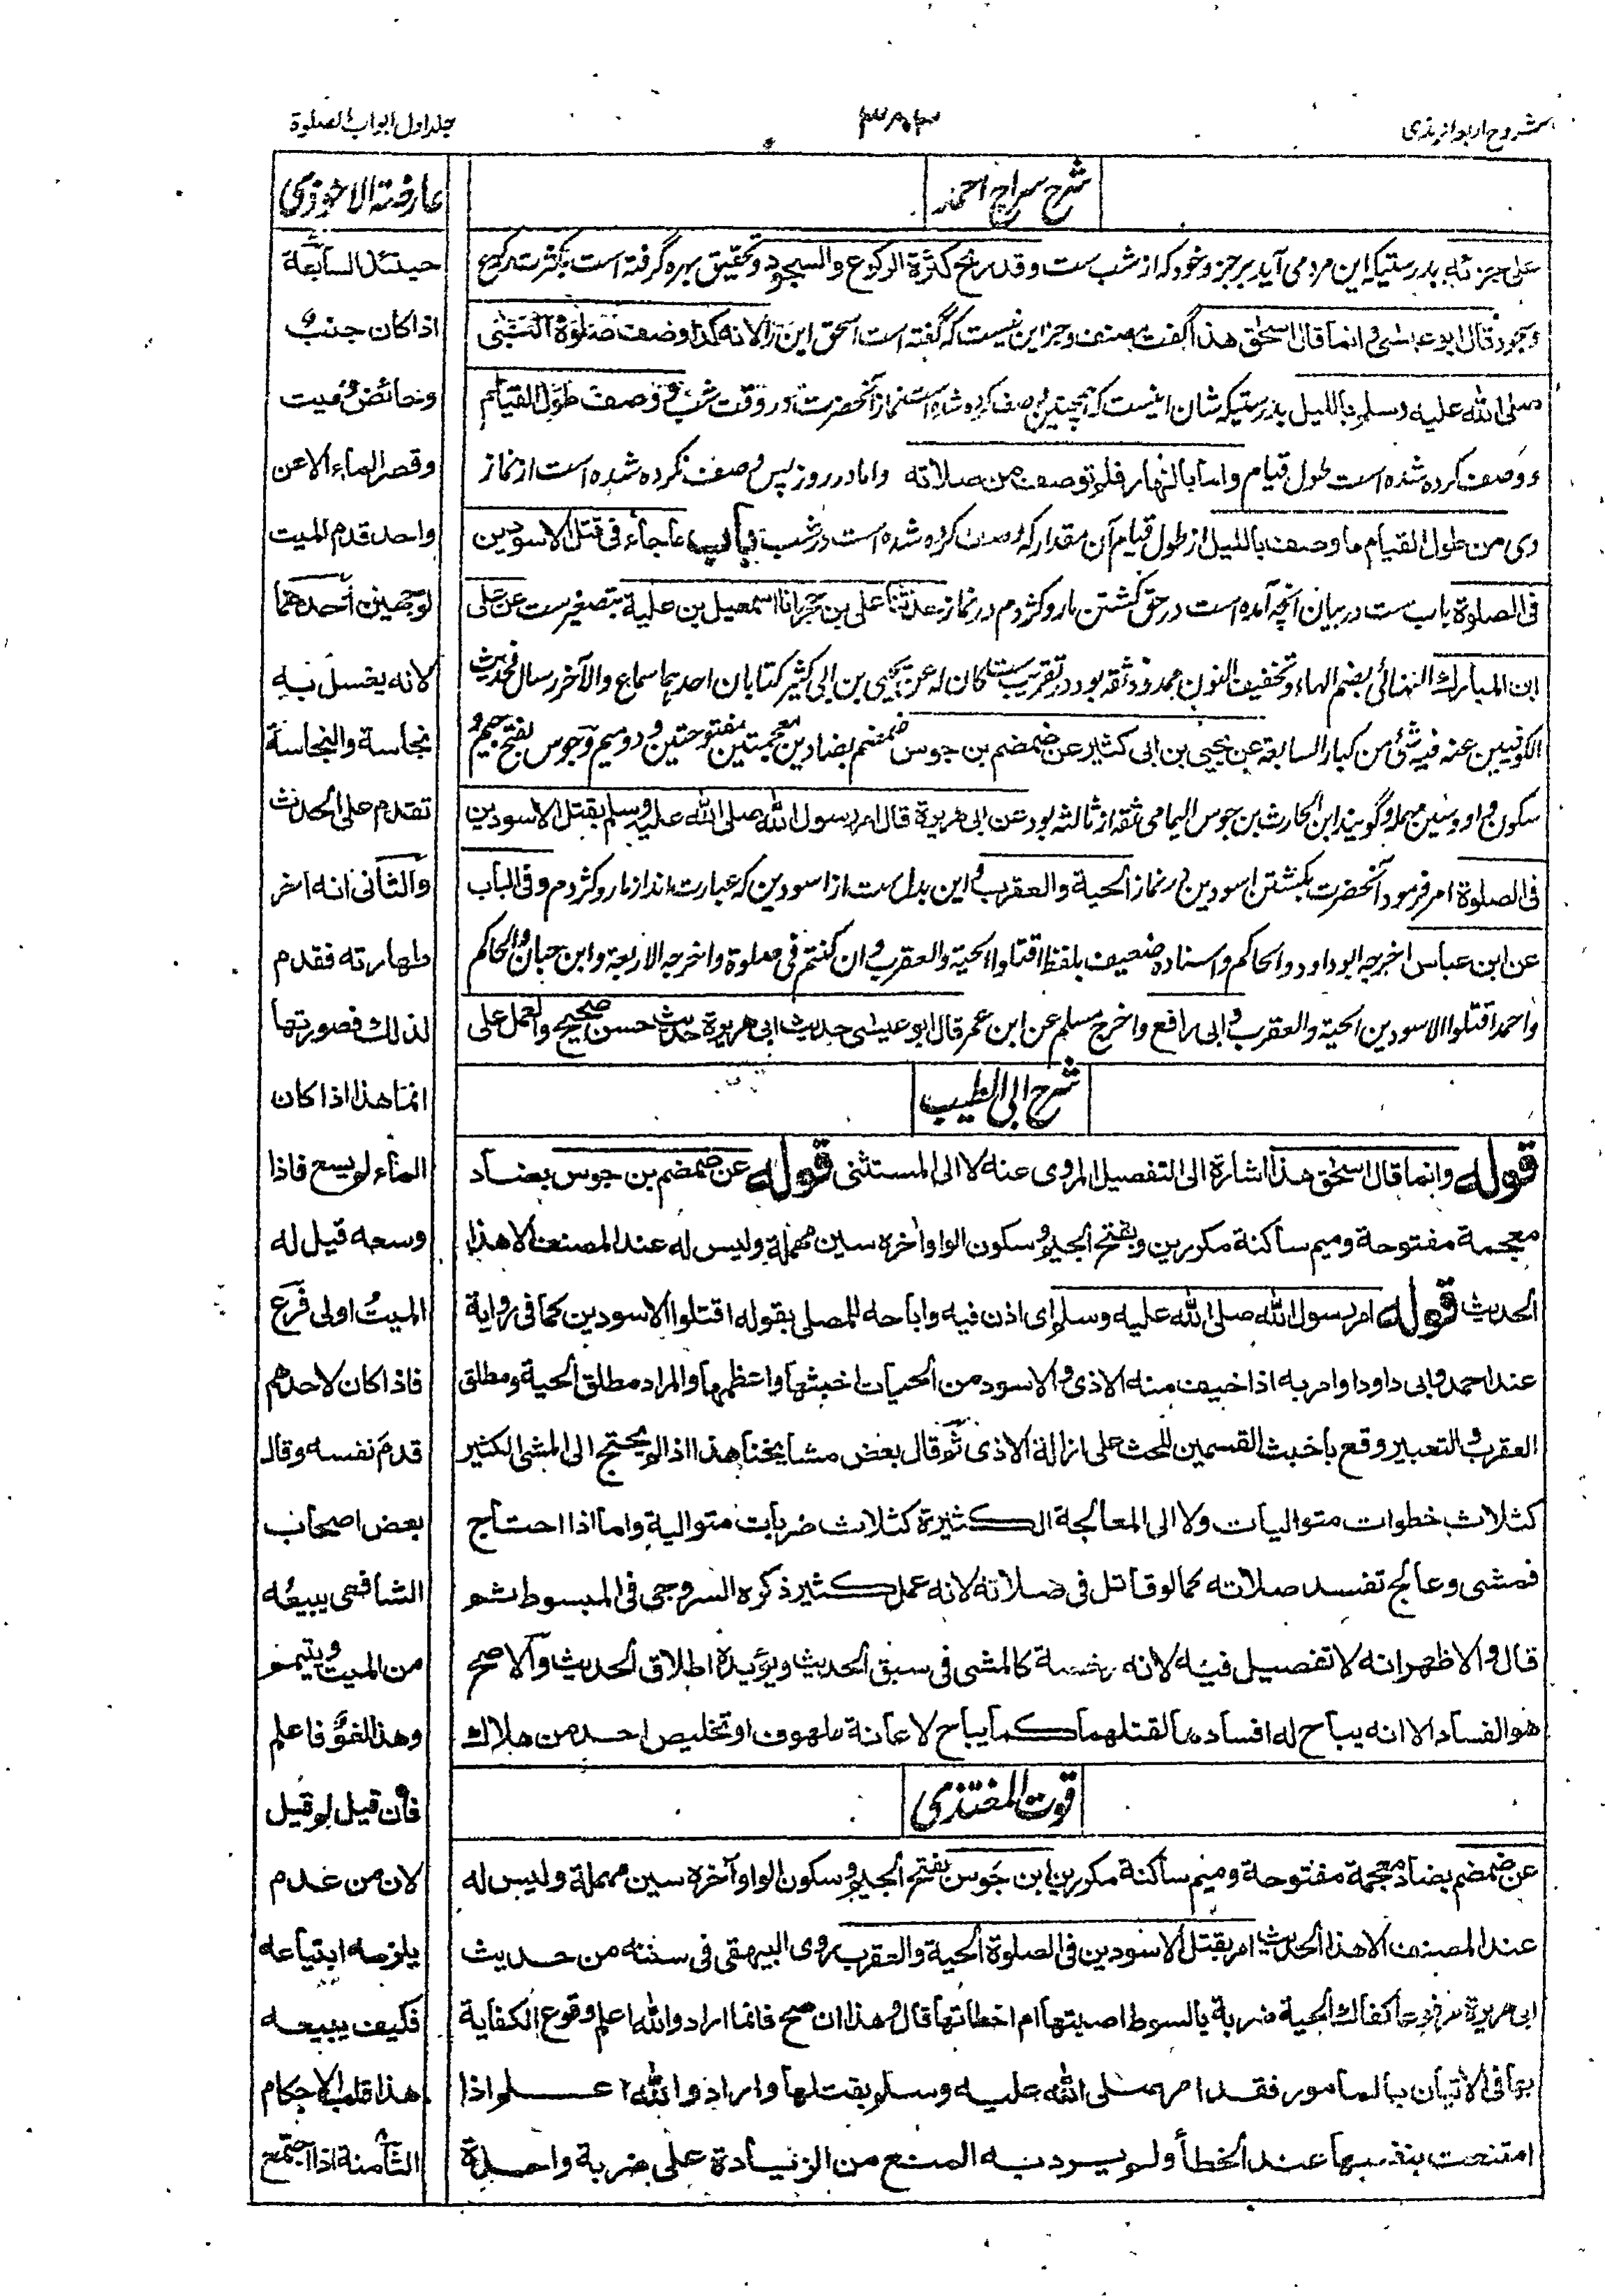 شروح اربعہ ترمذی
٣٨٣
جلد اول ابواب الصلوة
شرح سراج احمد
علی جزئه بدرستیکه این مرد می آید بر جزو خود که از شب ست وقد ربح كثرة الركوع والسجود و تحقیق بهره گرفته است بکثرت رکوع
وسجود قال ابو عيسى وانما قال اسحق هذا گفت مصنف وجز این نیست که گفته است اسحق این را لانه كذا وصف صلوة النبي
صلى الله عليه وسلم بالليل بدرستیکه شان اینست که همچنین وصف کرده شده است نماز آنحضرت در وقت شب ووصف طول القيام
و وصف کرده شده است طول قیام واما بالنهار فلم توصف من صلاته واما در روز پس وصف نکرده شده است از نماز
وی من طول القيام ما وصف بالليل از طول قیام آن مقدار که وصف کرده شده است در شب باب ماجاء فى قتل الاسودين
فى الصلوة باب ست در بیان آنچه آمده است در حق کشتن مار و کژدم در نماز حدثنا على بن حجر انا اسمعيل بن علية بتصغیر ست عن على
ابن المبارك الهنائى بضم الهاء وتخفيف النون ممدود ثقه بود در تقریب ست كان له عن يحيى بن ابى كثير كتابان احدهما سماع والآخر ارسال فحديث
الكوفيين عنه فيه شئ من كبار السابعة عن يحيى بن ابى كثير عن ضمضم بن جوس ضمضم بضادين معجمتين مفتوحتين و دو میم وجوس بفتح جیم و
سکون واو وسین مهمله و گویند ابن الحارث بن جوس الیمامی ثقه از ثالثه بود عن ابى هريرة قال امر رسول الله صلى الله عليه وسلم بقتل الاسودين
فى الصلوة امر فرمود آنحضرت بکشتن اسودین در نماز الحية والعقرب این بدل ست از اسودین که عبارت اند از مار و کژدم وفى الباب
عن ابن عباس اخرجه ابو داود والحاكم واسناده ضعيف بلفظ اقتلوا الحية والعقرب وان كنتم فى صلوة واخرجه الاربعة وابن حبان والحاكم
واحمد اقتلوا الاسودين الحية والعقرب وابى رافع واخرج مسلم عن ابن عمر قال ابو عيسى حديث ابى هريرة حديث حسن صحيح والعمل على
شرح ابى الطيب
قوله وانما قال اسحق هذا اشارة الى التفصيل المروى عنه لا الى المستثنى قوله عن ضمضم بن جوس بضاد
معجمة مفتوحة وميم ساكنة مكررين وبفتح الجيم وسكون الواو آخره سين مهملة وليس له عند المصنف الا هذا
الحديث قوله امر رسول الله صلى الله عليه وسلم اى اذن فيه واباحه للمصلى بقوله اقتلوا الاسودين كما فى رواية
عند احمد وابى داود او امر به اذا خيف منه الاذى والاسود من الحيات اخبثها واعظمها والمراد مطلق الحية ومطلق
العقرب والتعبير وقع باخبث القسمين للحث على ازالة الاذى ثم قال بعض مشايخنا هذا اذا لم يحتج الى المشى الكثير
كثلاث خطوات متواليات ولا الى المعالجة الكثيرة كثلاث ضربات متوالية واما اذا احتاج
فمشى وعالج تفسد صلاته كما لو قاتل فى صلاته لانه عمل كثير ذكره السروجى فى المبسوط ثم
قال والاظهر انه لا تفصيل فيه لانه رخصة كالمشى فى سبق الحدث ويؤيده اطلاق الحديث والاصح
هو الفساد الا انه يباح له افسادها لقتلهما كما يباح لاعانة ملهوف او تخليص احد من هلاك
قوت المغتذى
عن ضمضم بضاد معجمة مفتوحة وميم ساكنة مكررين ابن جَوس بفتح الجيم وسكون الواو آخره سين مهملة وليس له
عند المصنف الا هذا الحديث امر بقتل الاسودين فى الصلوة الحية والعقرب روى البيهقى فى سننه من حديث
ابى هريرة مرفوعا كفاك الحية ضربة بالسوط اصبتها ام اخطاتها قال وهذا ان صح فانما اراد والله اعلم وقوع الكفاية
بها فى الاتيان بالمامور فقد امر صلى الله عليه وسلم بقتلها واراد والله اعلم اذا
امتنعت بنفسها عند الخطأ ولم يرد به المنع من الزيادة على ضربة واحدة
عارضة الاحوذى
حينئذ السابعة
اذا كان جنب و
وحائض وميت
وقصر الماء الا عن
واحد قدم الميت
لوجهين احدهما
لانه يغسل به
نجاسة والنجاسة
تقدم على الحدث
والثانى انه اخر
طهارته فقدم
لذلك فصورتها
انما هذا اذا كان
الماء لم يسع فاذا
وسعه قيل له
الميت اولى فرع
فاذا كان لاحدهم
قدم نفسه وقال
بعض اصحاب
الشافعى يبيعه
من الميت ويتيمم
وهذا لغو فاعلم
فان قيل لم قيل
لان من عدم
يلزمه ابتياعه
فكيف يبيعه
هذا قلب الاحكام
الثامنة اذا اجتمع